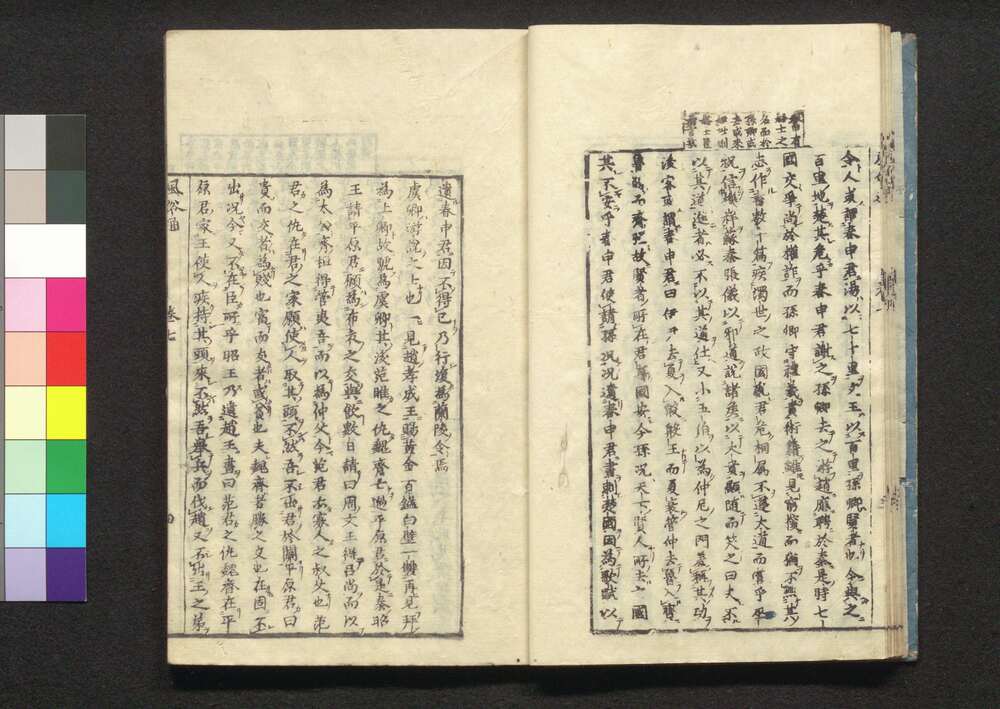 令人或謂春申君湯以七十里文王以百里孫卿賢者也今與之
百里地楚其危乎春申君謝之孫卿去之游趙應聘於秦是時七
國交爭尚於權詐而孫卿守禮義貴術籍雖見窮擯而猶不黜其
志作書數十篇疾濁世之政國亂君危相屬不遵大道而營乎巫
祝信禨祥蘇秦張儀以邪道說諸矦以大貴顯隨而笑之曰夫不
以其道進者必不以其道仕又小五伯以為仲尼之門羞稱其功
後客或謂春申君曰伊尹去夏入殷殷王而夏衰管仲去魯入齊
魯弱而齊强故賢者所在君尊國安今孫況天下賢人所去之國
其不安乎春申君使請孫況況遺春申君書刺楚國因為歌賦以
遺春申君因不得已乃行復為蘭陵令焉
虞卿游說之士也一見趙孝成王賜黃金百鎰白璧一雙再見拜
為上卿故號為虞卿其後范睢之仇魏齊亡過平原君於是秦昭
王請平原君願為布衣之交與飲數日請曰周文王得呂尚而以
為太公齊桓得管夷吾而以為仲父今范君亦寡人之叔父也范
君之仇在君之家願使人取其頭不然吾不出君於關平原君曰
貴而交者為賤也富而交者或貧也夫魏齊者勝之交也在固不
出況今又不在臣所乎昭王乃遺趙王書曰范君之仇魏齊在平
原君家王使人疾持其頭來不然吾舉兵而伐趙又不出王之弟
風俗通 卷七